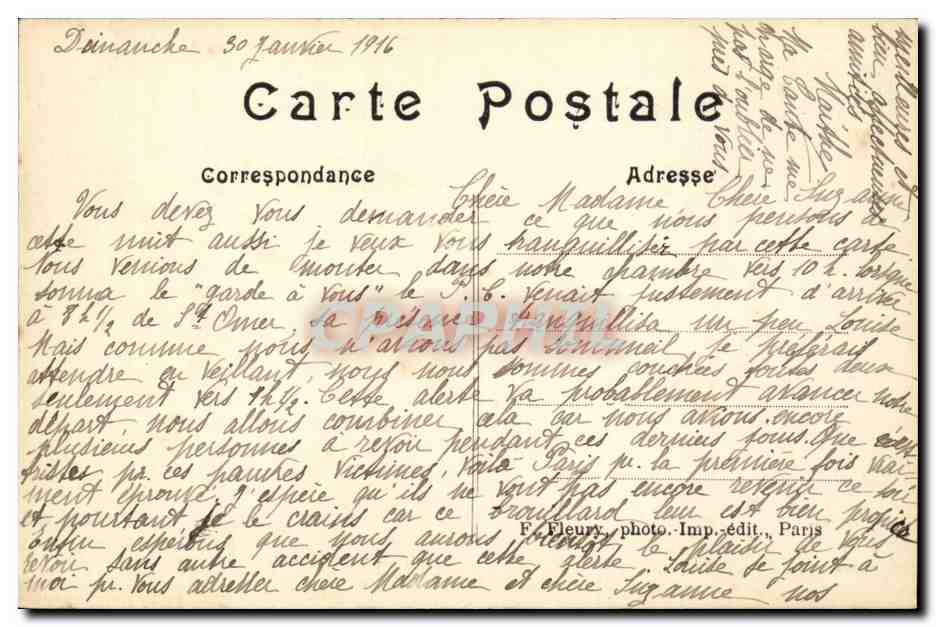 Dimanche 30 Janvier 1916
Carte Postale
Correspondance
Adresse
Chère Madame, Chère Suzanne
Vous devez vous demander ce que nous pensons de
cette nuit aussi je veux vous tranquilliser par cette carte
Nous venions de monter dans notre chambre vers 10 h. lorsque
sonna le "garde à vous" le P. C. venait justement d'arriver
à 8h 1/2 de St Omer, sa présence tranquillisa un peu Louise
Mais comme nous n'avions pas sommeil je préférais
attendre en veillant, nous nous sommes couchées toutes deux
seulement vers 1h 1/2. Cette alerte va probablement avancer notre
départ nous allons combiner cela car nous avions encore
plusieurs personnes à revoir pendant ces derniers jours. Que c'est
triste pr. ces pauvres victimes, voilà Paris pr. la première fois vrai
ment éprouvé. J'espère qu'ils ne vont pas encore revenir ce soir
et pourtant je le crains car ce brouillard leur est bien propice
enfin espérons que nous aurons bientôt le plaisir de vous
revoir sans autre accident que cette alerte. Louise se joint à
moi pr. vous adresser chère Madame et chère Suzanne nos
F. Fleury, photo.-Imp.-édit., Paris
meilleures et
bien affectueuses
amitiés
Marthe
Ma Tante me
charge de ne
pas l'oublier
près de vous
CPAPHIL